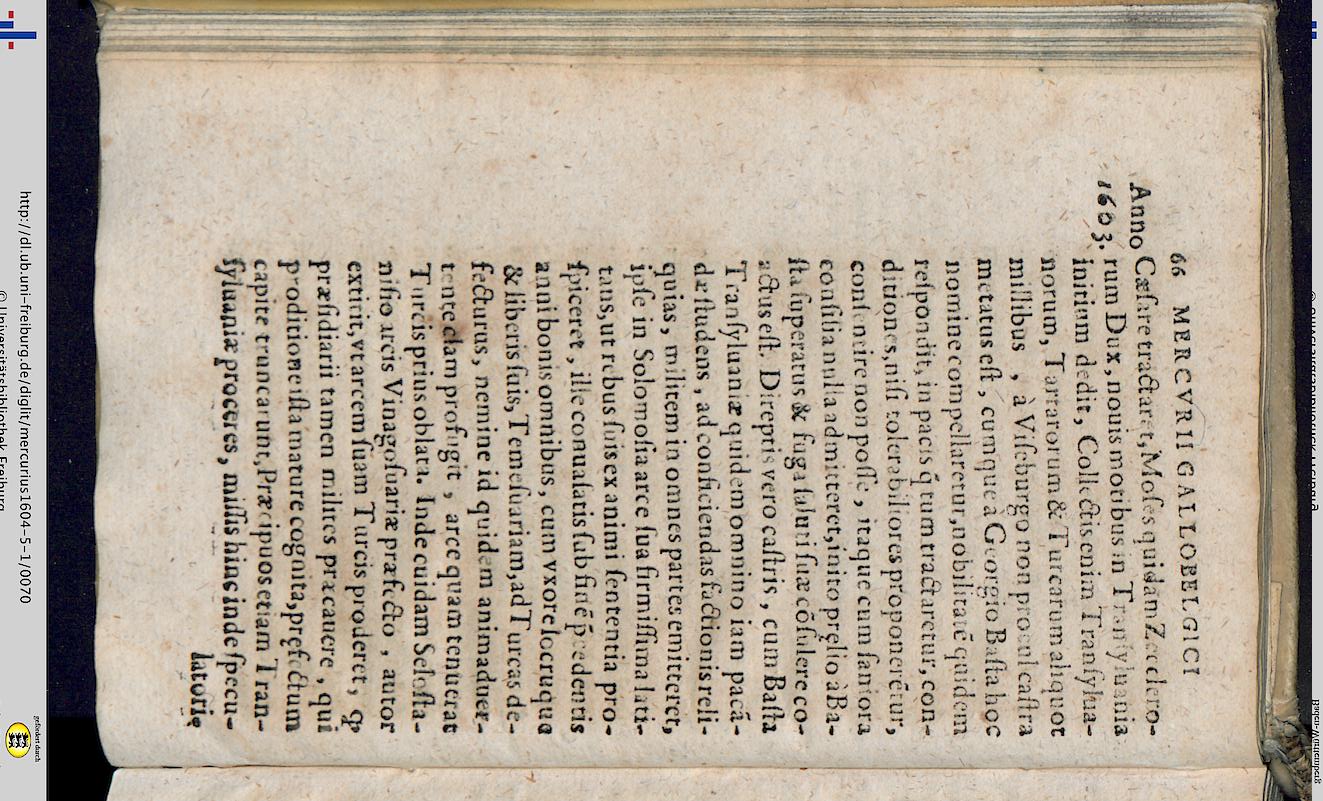 66 MERCVRII GALLOBELGICI
Anno
1603.
Cæſare tractarat, Moſes quidam Zecclero-
rum Dux, nouis motibus in Tranſyluania
initium dedit, Collectis enim Tranſylua-
norum, Tartarorum & Turcarum aliquot
millibus, à Viſeburgo non procul caſtra
metatus eſt, cumque à Georgio Baſta hoc
nomine compellaretur, nobilitatē quidem
reſpondit, in pacis q̃ tum tractaretur, con-
ditiones, niſi tolerabiliores proponerētur,
conſentire non poſſe, itaque cum ſaniora
conſilia nulla admitteret, inito pręlio à Ba-
ſta ſuperatus & fuga ſaluti ſuæ cōſulere co-
actus eſt. Direptis vero caſtris, cum Baſta
Tranſyluaniæ quidem omnino iam pacā-
dæ ſtudens, ad conficiendas factionis reli-
quias, militem in omnes partes emitteret,
ipſe in Solomoſia arce ſua firmiſſima lati-
tans, ut rebus ſuis ex animi ſententia pro-
ſpiceret, ille conuaſatis ſub finē p̄cedentis
anni bonis omnibus, cum vxore ſocruque
& liberis ſuis, Temeſuariam, ad Turcas de-
fecturus, nemine id quidem animaduer-
tente clam profugit, arce quam tenuerat
Turcis prius oblata. Inde cuidam Seloſta-
niſio arcis Vinagoſuariæ præfecto, autor
extitit, vt arcem ſuam Turcis proderet, ꝙ
præſidiarii tamen milites præcauere, qui
proditione iſta mature cognita, pręfectum
capite truncarunt, Præcipuos etiam Tran-
ſyluaniæ proceres, miſſis hinc inde ſpecu-
latorię
http://dl.ub.uni-freiburg.de/diglit/mercurius1604-5-1/0070
© Universitätsbibliothek Freiburg
gefördert durch